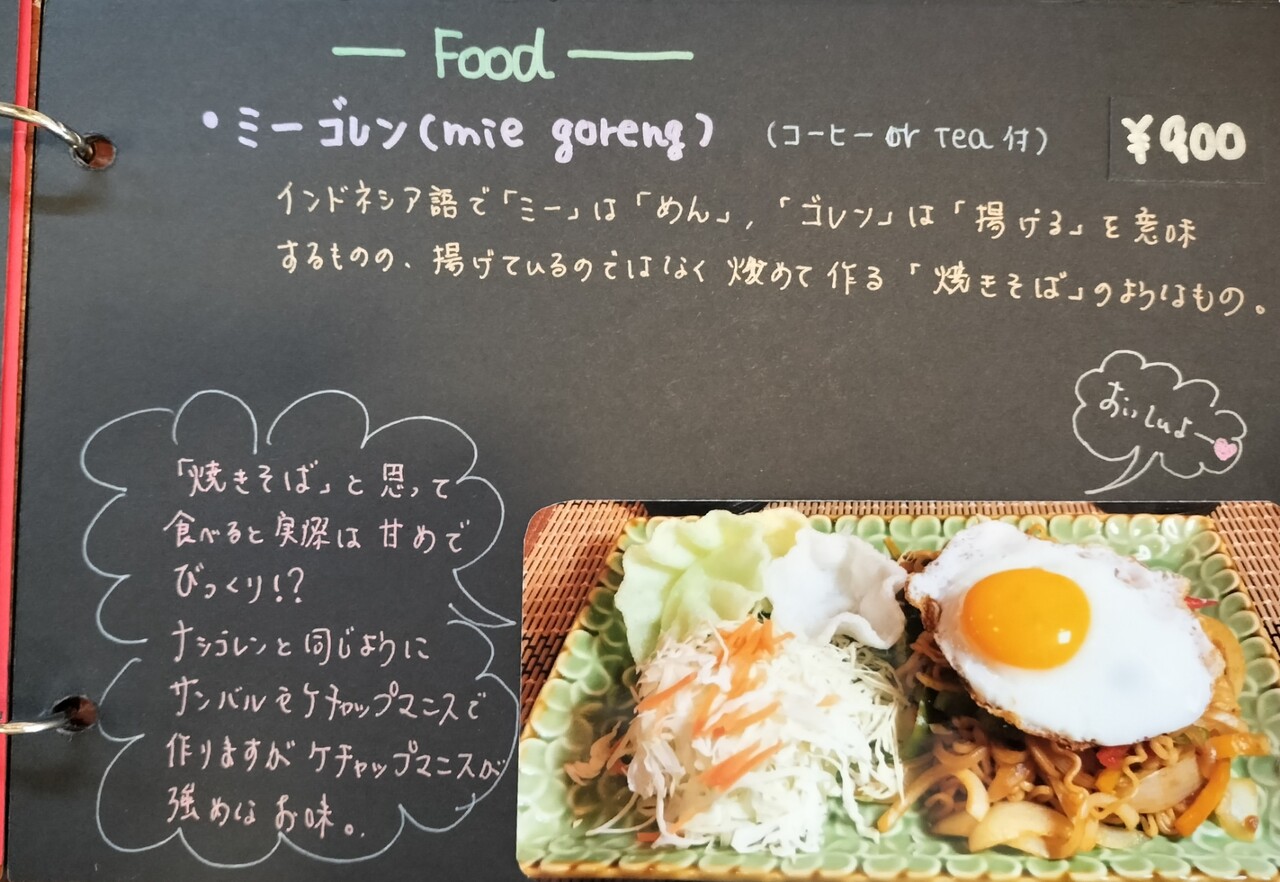 Food
・ミーゴレン(mie goreng) (コーヒー or Tea 付) ¥900
インドネシア語で「ミー」は「めん」,「ゴレン」は「揚げる」を意味
するものの、揚げているのではなく炒めて作る「焼きそば」のようなもの。
おいしいよー
「焼きそば」と思って
食べると実際は甘めで
びっくり!?
ナシゴレンと同じように
サンバルやケチャップマニスで
作りますがケチャップマニスが
強めなお味。